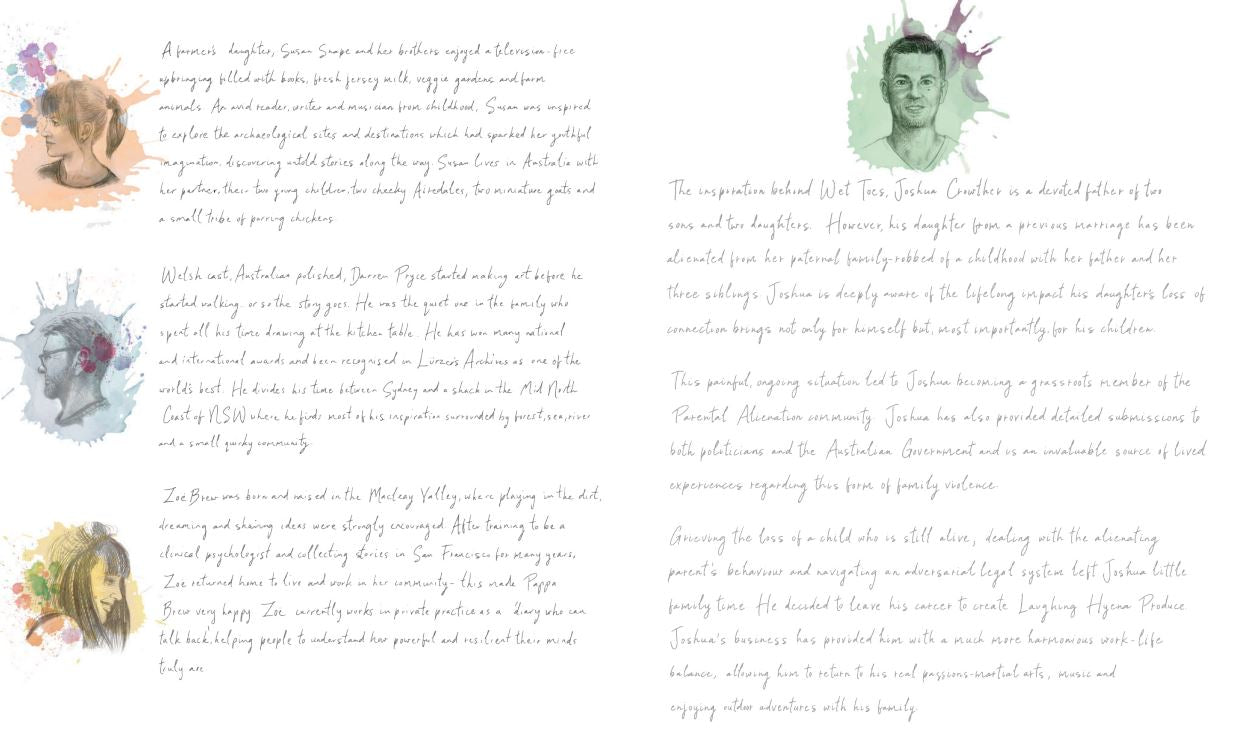 A farmer's daughter, Susan Snape and her brothers enjoyed a television-free
upbringing filled with books, fresh jersey milk, veggie gardens and farm
animals. An avid reader, writer and musician from childhood, Susan was inspired
to explore the archaeological sites and destinations which had sparked her youthful
imagination, discovering untold stories along the way. Susan lives in Australia with
her partner, their two young children, two cheeky Airedales, two miniature goats and
a small tribe of purring chickens.
Welsh cast, Australian polished, Darren Pryce started making art before he
started walking.. or so the story goes. He was the quiet one in the family who
spent all his time drawing at the kitchen table. He has won many national
and international awards and been recognised in Lürzer's Archives as one of the
world's best. He divides his time between Sydney and a shack in the Mid North
Coast of NSW where he finds most of his inspiration surrounded by forest, sea, river
and a small quirky community.
Zoë Brew was born and raised in the Macleay Valley, where playing in the dirt,
dreaming and sharing ideas were strongly encouraged. After training to be a
clinical psychologist and collecting stories in San Francisco for many years,
Zoë returned home to live and work in her community- this made Pappa
Brew very happy. Zoë currently works in private practice as a 'diary who can
talk back', helping people to understand how powerful and resilient their minds
truly are.
The inspiration behind Wet Toes, Joshua Crowther is a devoted father of two
sons and two daughters. However, his daughter from a previous marriage has been
alienated from her paternal family-robbed of a childhood with her father and her
three siblings. Joshua is deeply aware of the lifelong impact his daughter's loss of
connection brings not only for himself but, most importantly, for his children.
This painful, ongoing situation led to Joshua becoming a grassroots member of the
Parental Alienation community. Joshua has also provided detailed submissions to
both politicians and the Australian Government and is an invaluable source of lived
experiences regarding this form of family violence.
Grieving the loss of a child who is still alive, dealing with the alienating
parent's behaviour and navigating an adversarial legal system left Joshua little
family time. He decided to leave his career to create Laughing Hyena Produce.
Joshua's business has provided him with a much more harmonious work-life
balance, allowing him to return to his real passions-martial arts, music and
enjoying outdoor adventures with his family.